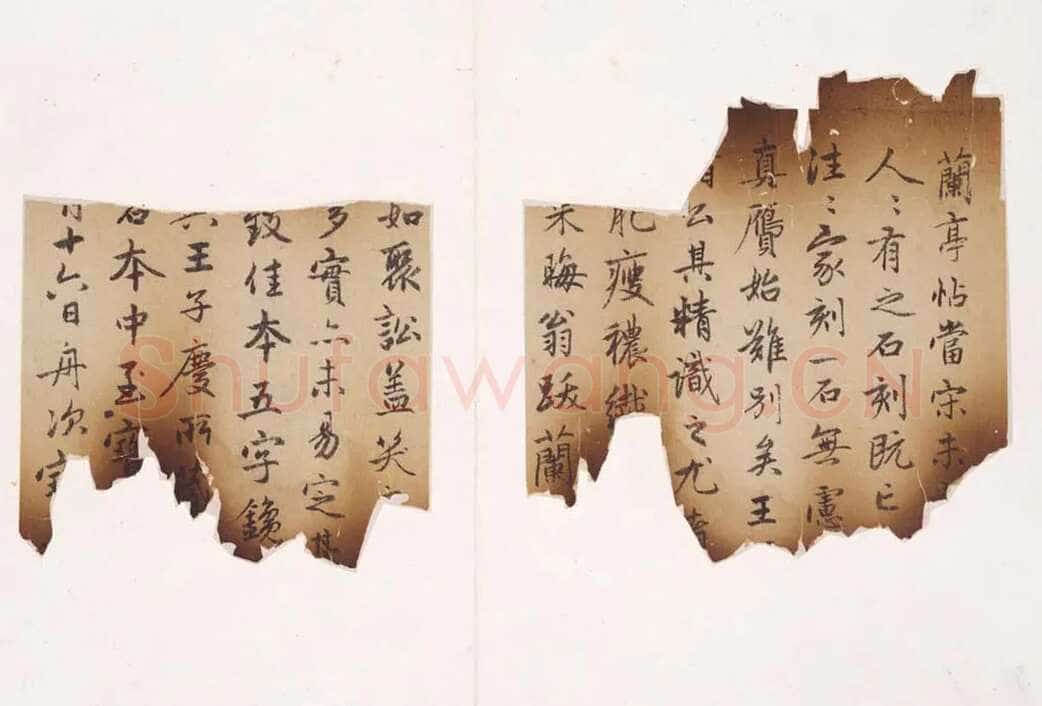 蘭亭帖當宋未
人〻有之石刻既亡
往〻家刻一石無慮
真贋始難別矣王
公其精識之尤
肥瘦穠纖
朱晦翁跋蘭
如聚訟蓋笑
多實亦未易定
致佳本五字鑱
王子慶所
石本中至寶
月十六日舟次
Shufawang.CN